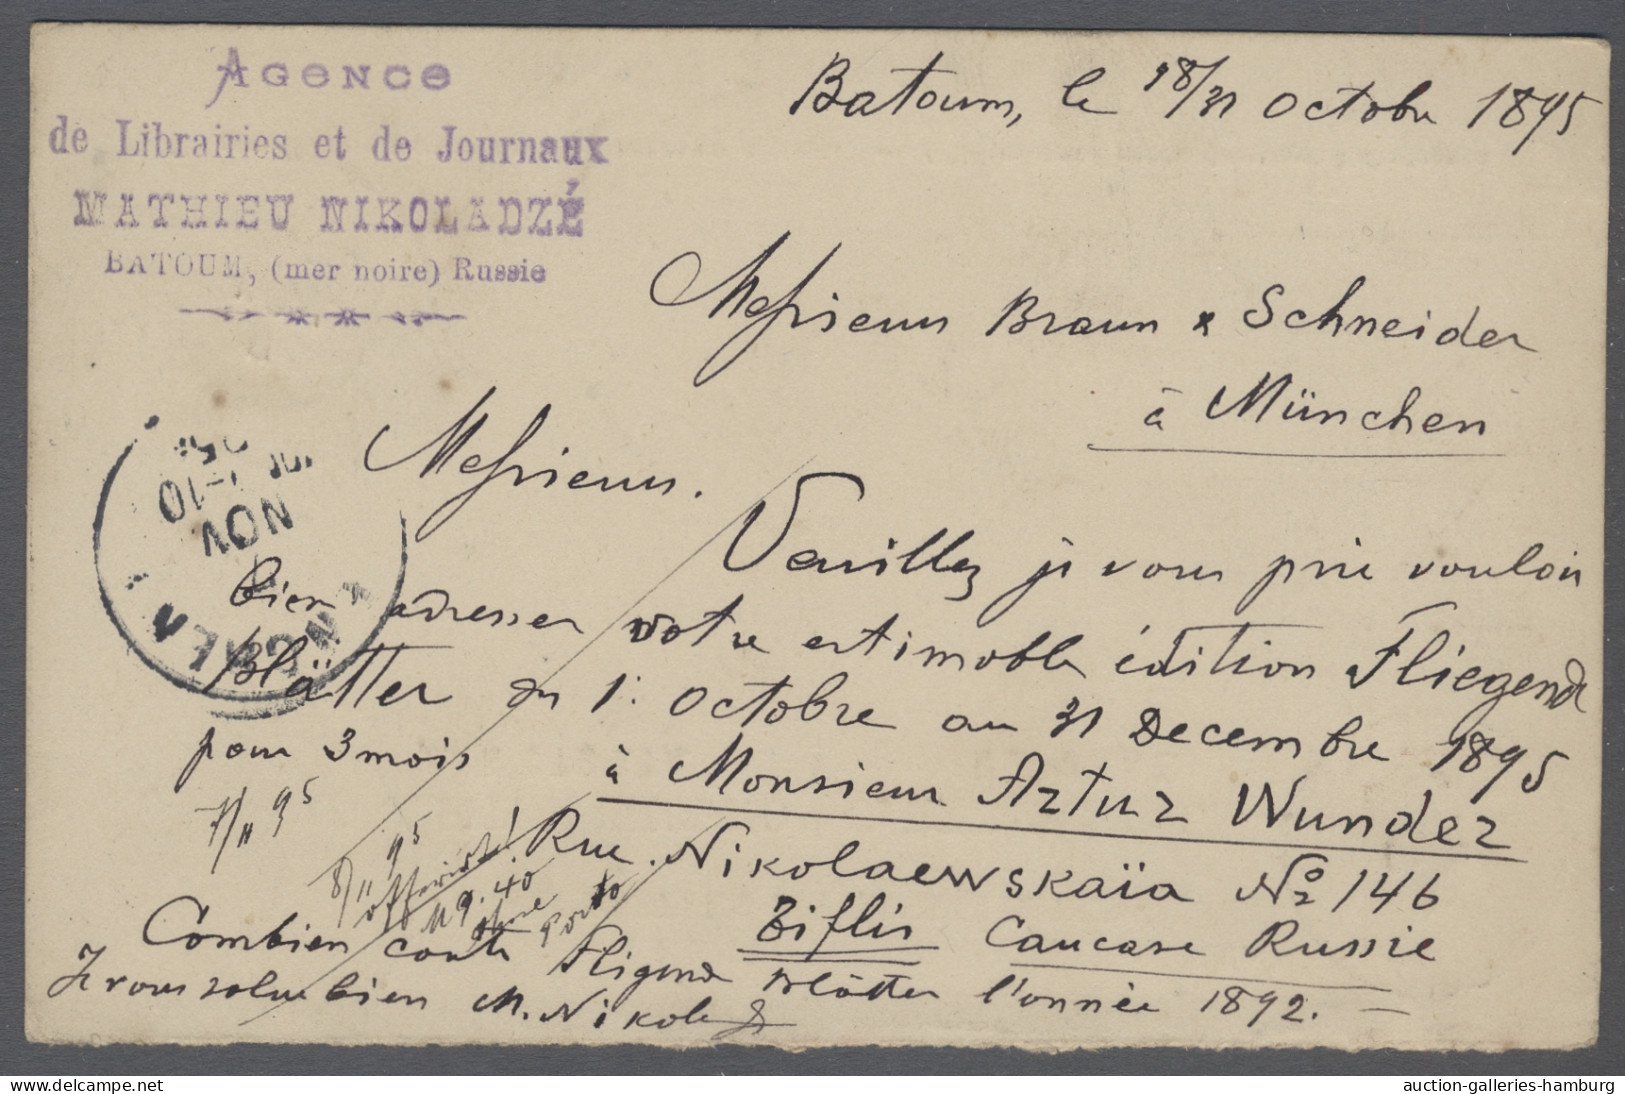 Agence
de Librairies et de Journaux
MATHIEU NIKOLADZÉ
BATOUM, (mer noire) Russie
Batoum, le 18/31 Octobre 1895
Messieurs Braun & Schneider
à München
Messieurs.
Veuillez je vous prie vouloir
bien adresser votre estimable édition Fliegende
Blätter du 1. Octobre au 31 Decembre 1895
pour 3 mois à Monsieur Artur Wunder
7/11 95
Rue Nikolaewskaïa № 146
8/11 95
offerirt!
M 9.40
ohne Porto
Tiflis Caucase Russie
Combien coute Fligend Blätter l'année 1892.
Je vous salue bien M. Nikoladz
NOV
auction-galleries-hamburg